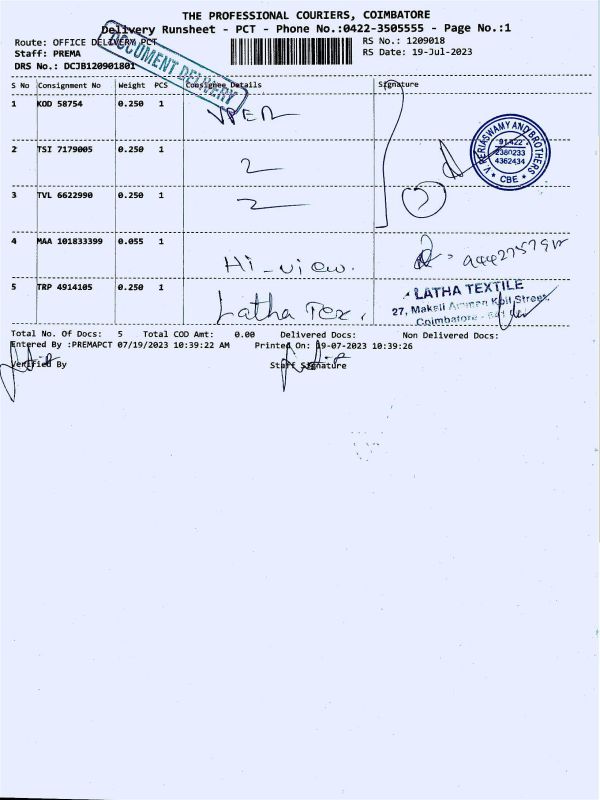 THE PROFESSIONAL COURIERS, COIMBATORE
Delivery Runsheet - PCT - Phone No.:0422-3505555 - Page No.:1
Route: OFFICE DELIVERY PCT
RS No.: 1209018
Staff: PREMA
RS Date: 19-Jul-2023
DRS No.: DCJB120901801
DOCUMENT DELIVERY
S No Consignment No Weight PCS Consignee Details Signature
1 KOD 58754 0.250 1 VPER
2 TSI 7179005 0.250 1 2
V. PERIASWAMY AND BROTHERS
91422
2380233
4362434
* CBE *
3 TVL 6622990 0.250 1 2
4 MAA 101833399 0.055 1 Hi-view.
5 TRP 4914105 0.250 1 Latha Tex.
LATHA TEXTILE
27, Makali Amman Koil Street,
Coimbatore - 641
Total No. Of Docs: 5 Total COD Amt: 0.00 Delivered Docs: Non Delivered Docs:
Entered By :PREMAPCT 07/19/2023 10:39:22 AM Printed On: 19-07-2023 10:39:26
Verified By Staff Signature